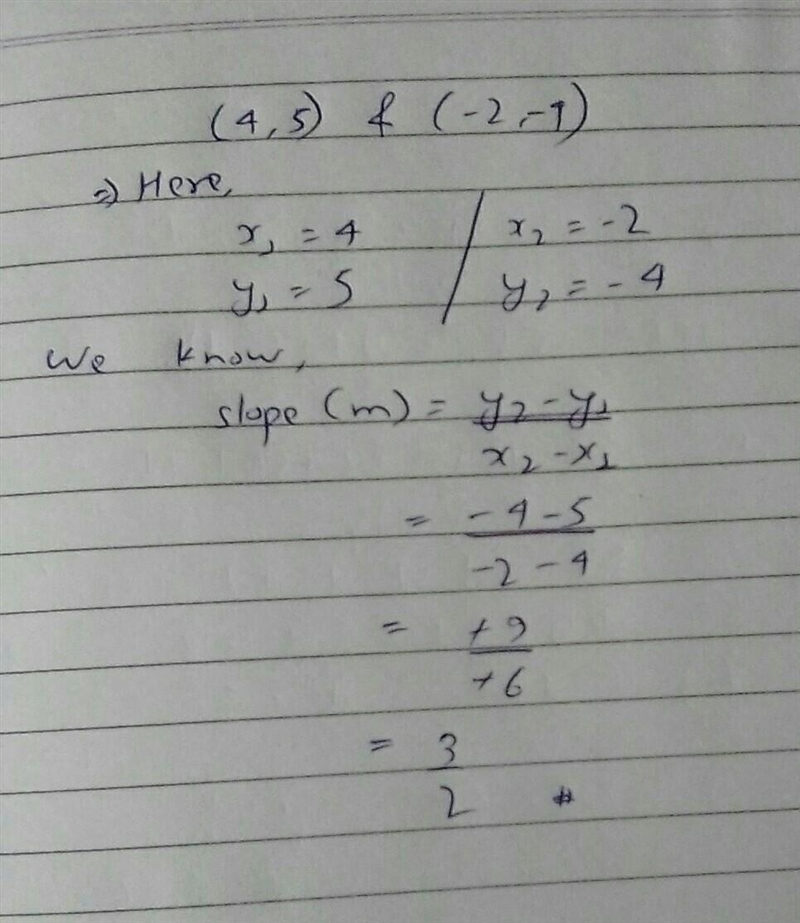 (4,5) & (-2,-4)
⇒ Here,
x₁ = 4 / x₂ = -2
y₁ = 5 / y₂ = -4
We know,
slope (m) = y₂ - y₁
x₂ - x₁
= -4 - 5
-2 - 4
= +9
+6
= 3
2 #